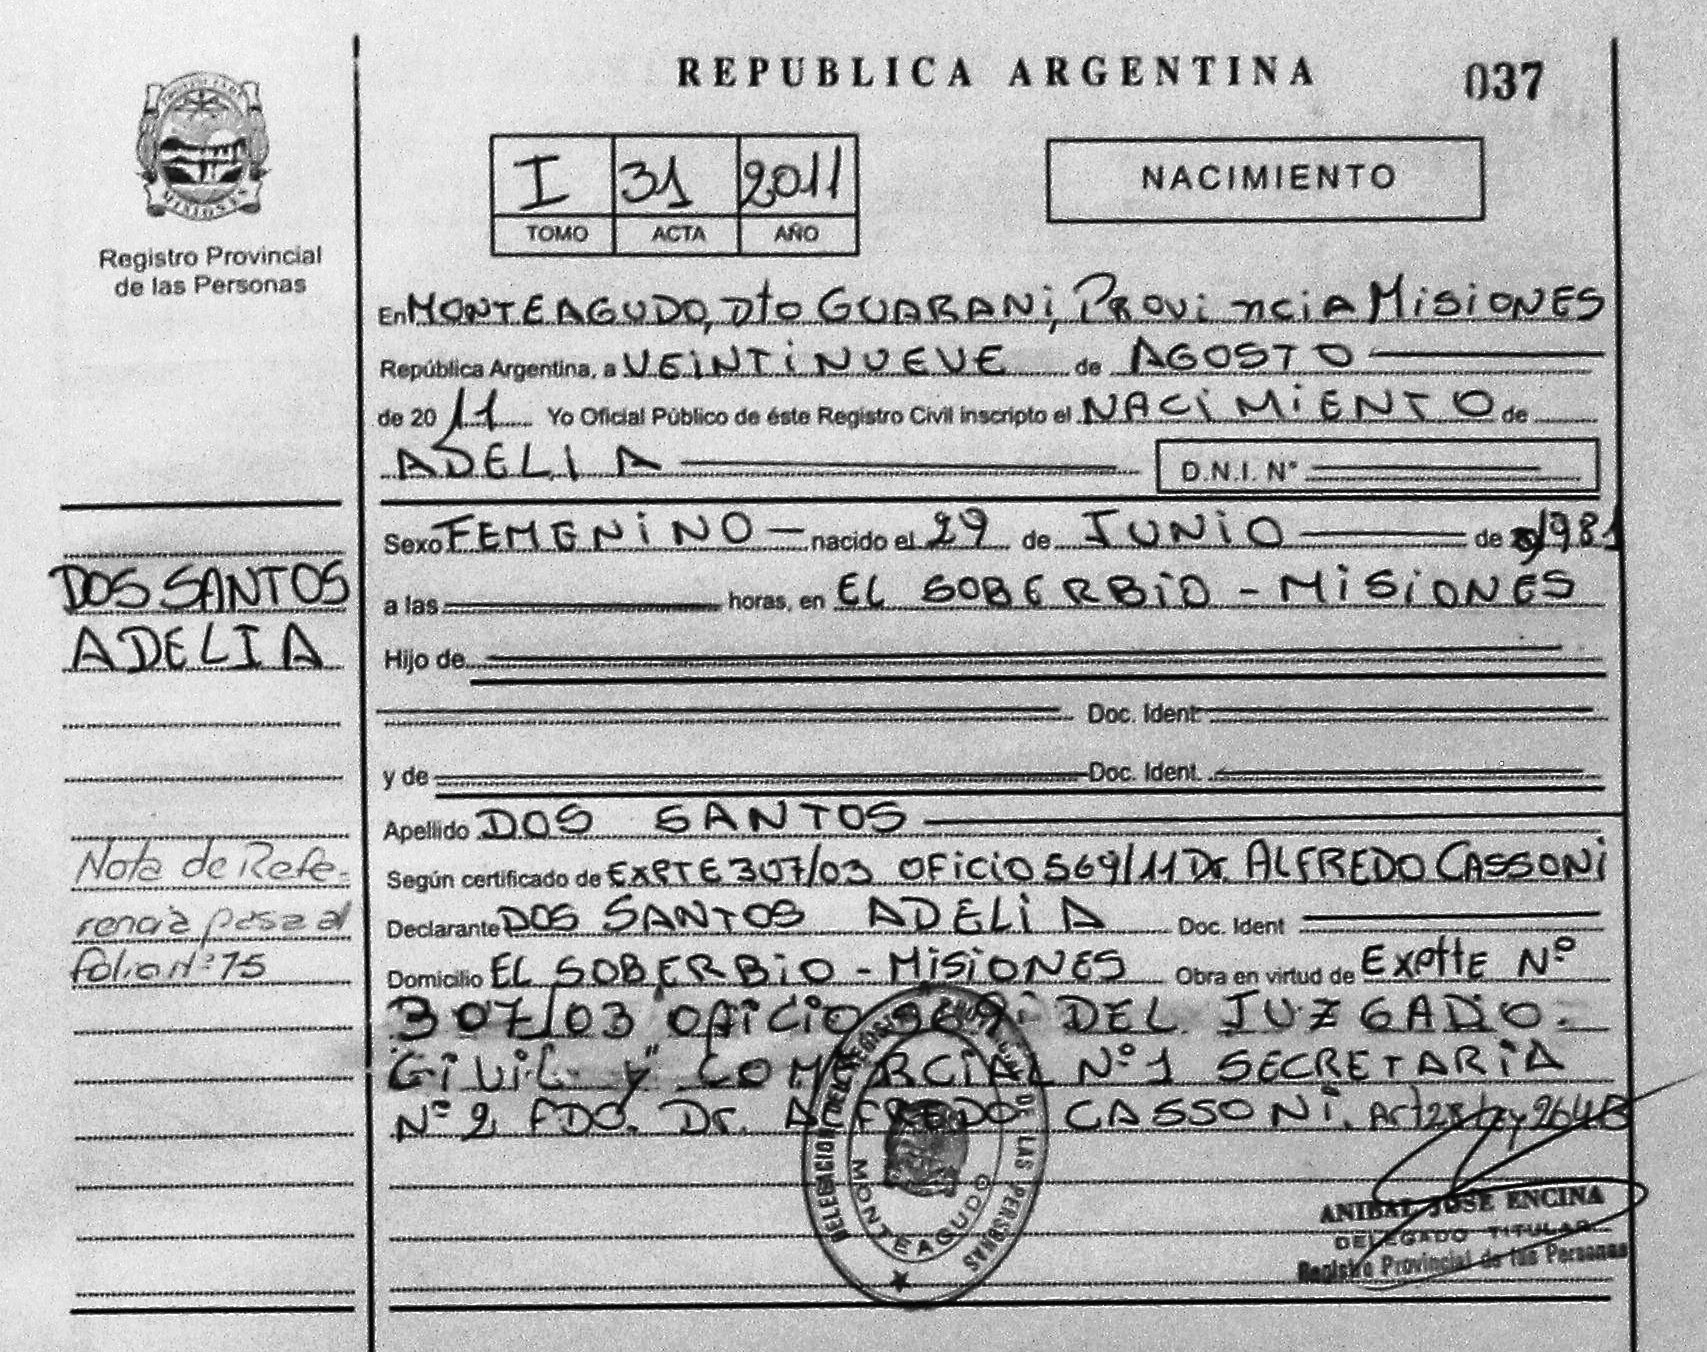 REPUBLICA ARGENTINA
037
I 31 2011
TOMO ACTA AÑO
NACIMIENTO
MISIONES
Registro Provincial
de las Personas
En MONTEAGUDO, Dto GUARANi, PROViNCiA MiSiONES
República Argentina, a VEiNTiNUEVE de AGOSTO
de 2011 Yo Oficial Público de éste Registro Civil inscripto el NACiMiENTO de
ADELiA D.N.I. N°
Sexo FEMENiNO nacido el 29 de JUNiO de 1981
a las horas, en EL SOBERBiO - MiSiONES
Hijo de
Doc. Ident.
y de Doc. Ident.
Apellido DOS SANTOS
Según certificado de EXPTE 307/03 OFiCiO 569/11 Dr. ALFREDO CASSONi
Declarante DOS SANTOS ADELiA Doc. Ident
Domicilio EL SOBERBiO - MiSiONES Obra en virtud de Expte Nº
307/03 OFiCiO DEL JUZGADO
CiViL y COMERCiAL Nº 1 SECRETARiA
Nº 2 FDO. Dr. ALFREDO CASSONi. Art 28 Ley
DOS SANTOS
ADELIA
Nota de Refe-
rencia pasa al
folio Nº 75
DE LAS PERSONAS
MONTEAGUDO
ANIBAL JOSE ENCINA
DELEGADO TITULAR
Registro Provincial de las Personas